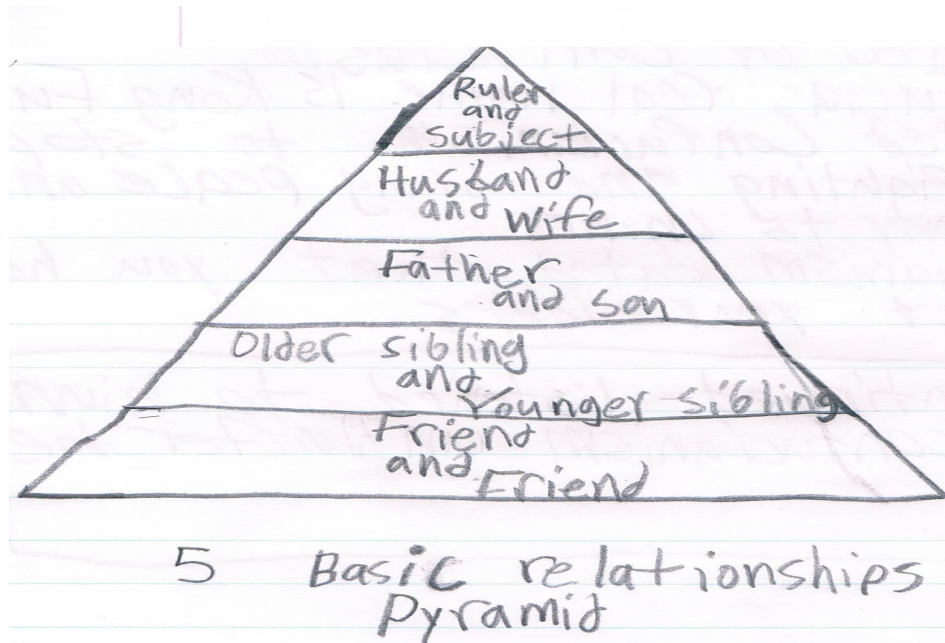 Ruler
and
subject
Husband
and Wife
Father
and son
Older sibling
and
Younger sibling
Friend
and
Friend
5 Basic relationships
Pyramid